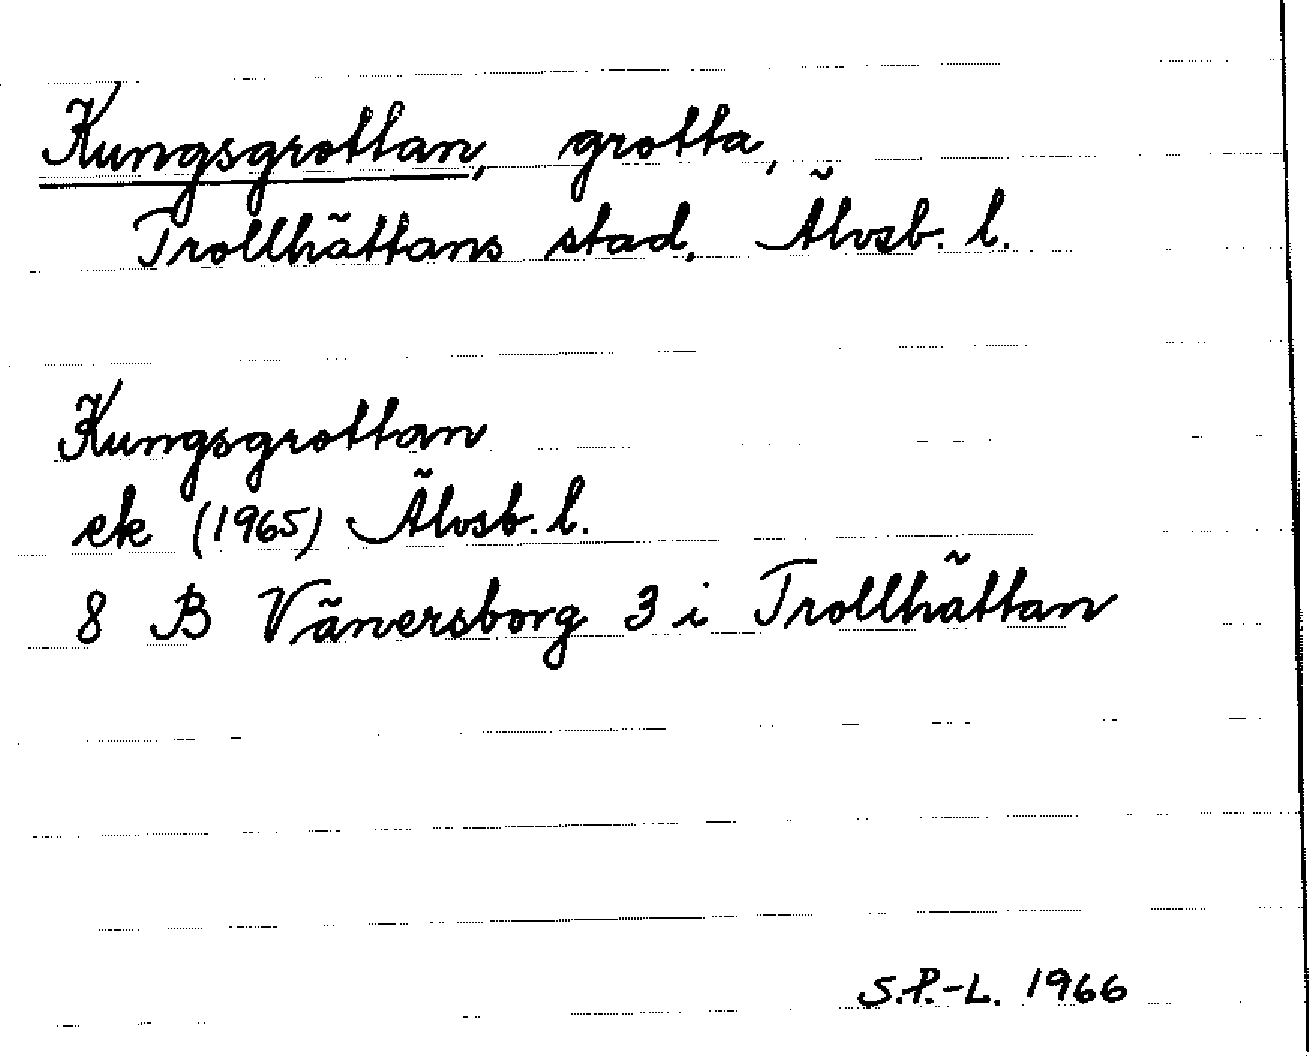 Kungsgrottan, grotta,
Trollhättans stad, Älvsb. l.
Kungsgrottan
ek (1965) Älvsb. l.
8 B Vänersborg 3 i Trollhättan
S.P.-L. 1966